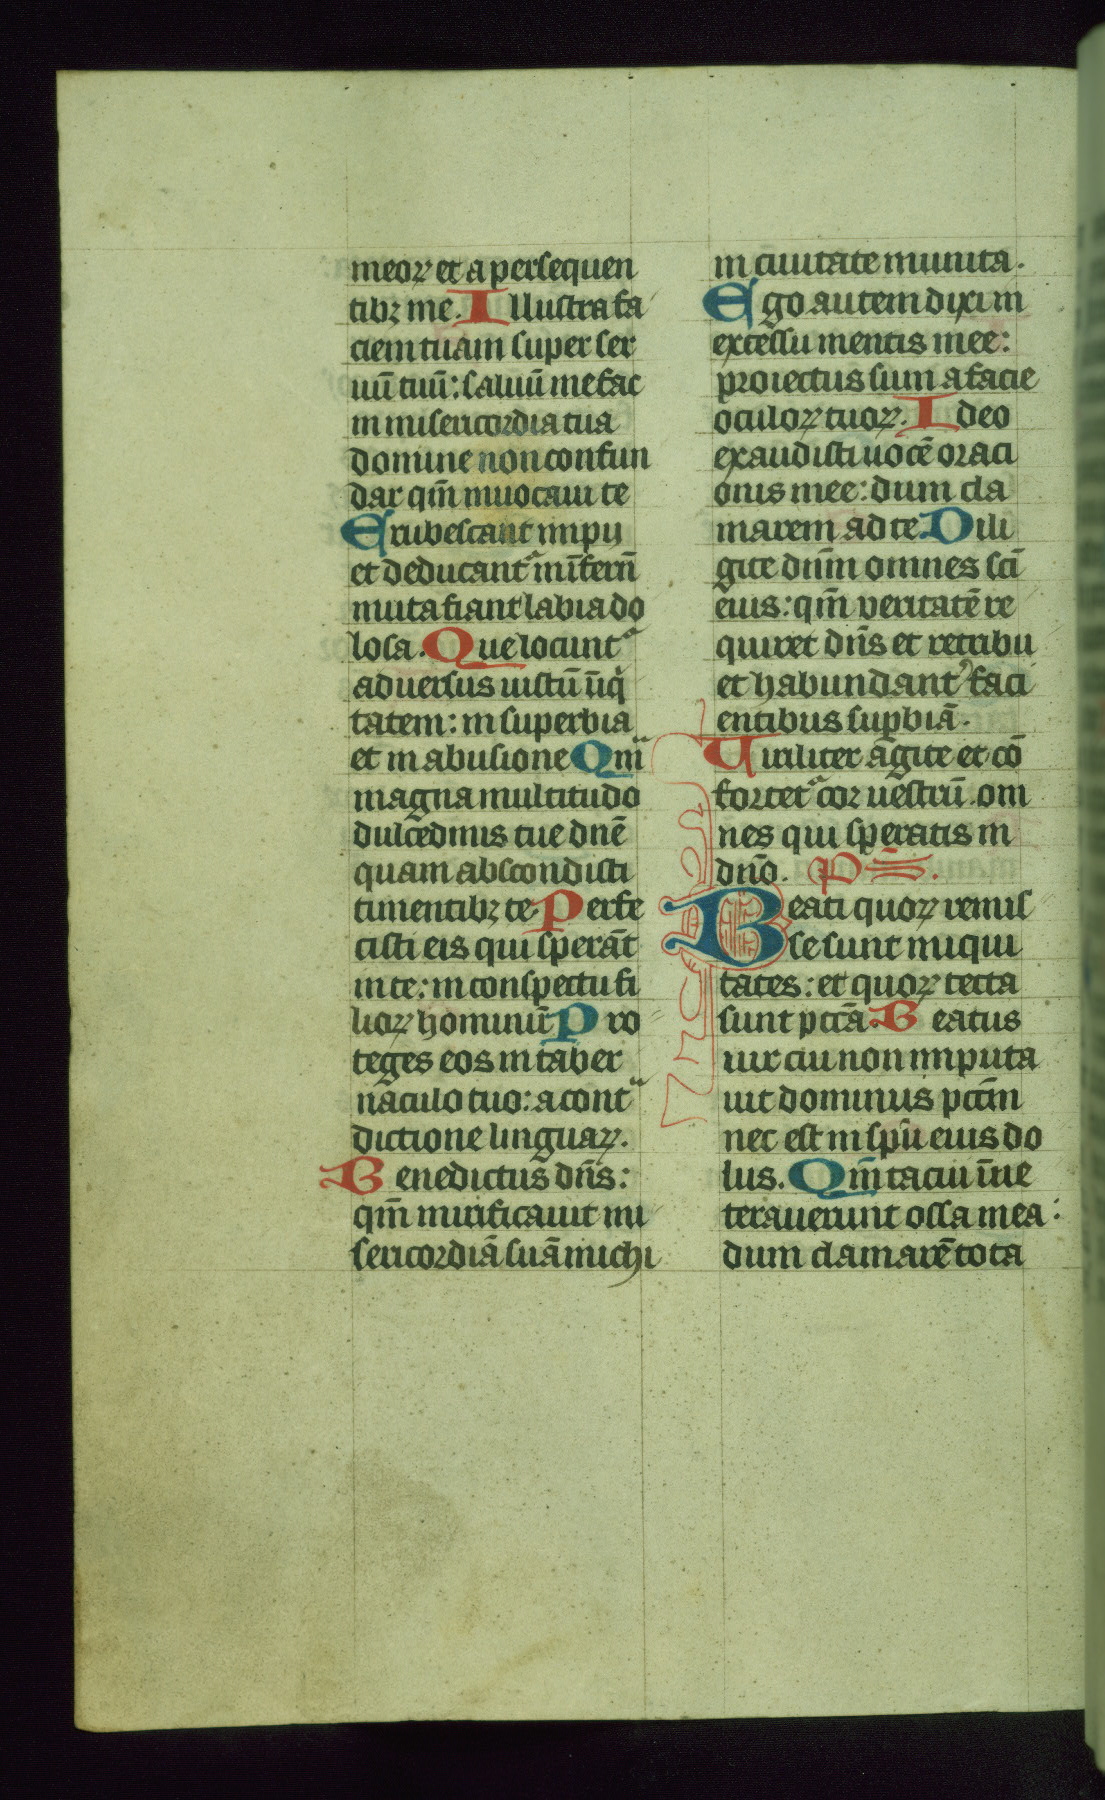 meoꝝ et a persequen
tibꝫ me. Illustra fa
ciem tuam super ser
uū tuū: saluū me fac
in misericordia tua
domine non confun
dar qm̄ inuocaui te
Erubescant impij
et deducant᷑ in īfernū
muta fiant labia do
losa. Que locunt᷑
aduersus iustū iniq̇
tatem: in superbia
et in abusione Qm̄
magna multitudo
dulcedinis tue dn̄e
quam abscondisti
timentibꝫ te. Perfe
cisti eis qui sperāt
in te: in conspectu fi
lioꝝ hominū Pro
teges eos in taber
naculo tuo: a cont
dictione linguaꝝ.
Benedictus dn̄s:
qm̄ mirificauit mi
sericordiā suā michi
in ciuitate munita.
Ego autem dixi in
excessu mentis mee:
proiectus sum a facie
oculoꝝ tuoꝝ. Ideo
exaudisti uocē oraci
onis mee: dum cla
marem ad te. Dili
gite dn̄m omnes sc̄i
eius: qm̄ veritatē re
quiret dn̄s et retribu
et habundant᷑ faci
entibus supbiā.
Uiriliter agite et cō
fortet᷑ cor uestrū. om
nes qui speratis in
dn̄o. Ps̄.
Beati quoꝝ remis
se sunt iniqui
tates: et quoꝝ tecta
sunt pctā. Beatus
uir cui non imputa
uit dominus pctm̄
nec est in spū eius do
lus. Qm̄ tacui īue
terauerunt ossa mea:
dum clamarē tota